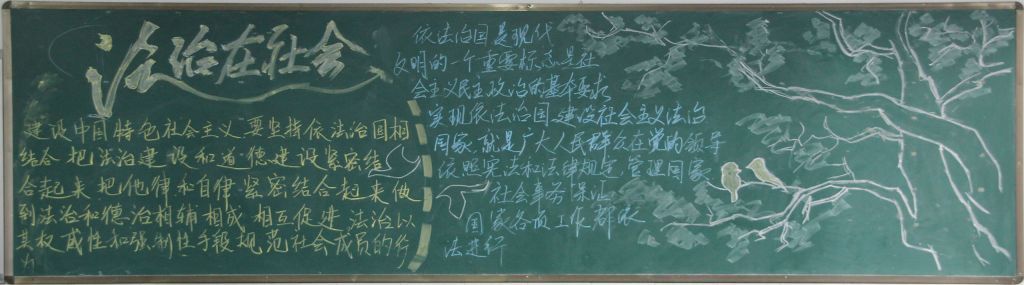 法治在社会
建设中国特色社会主义要坚持依法治国相
结合把法治建设和道德建设紧密结
合起来把他律和自律紧密结合起来做
到法治和德治相辅相成相互促进法治以
其权威性和强制性手段规范社会成员的行
为
依法治国是现代
文明的一个重要标志是社
会主义民主政治的基本要求
实现依法治国建设社会主义法治
国家就是广大人民群众在党的领导
依照宪法和法律规定管理国家
社会事务保证
国家各项工作都依
法进行